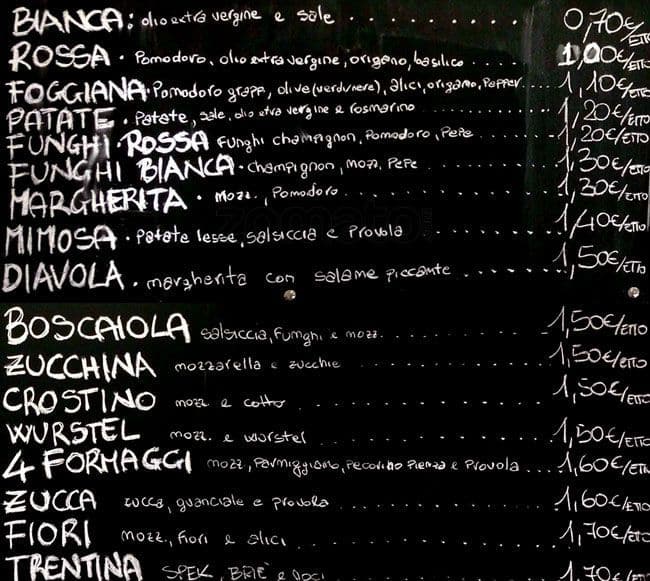 BIANCA: olio extra vergine e sale ......... 0,70€/ETTO
ROSSA · Pomodoro, olio extra vergine, origano, basilico ....... 1,00€/ETTO
FOGGIANA · Pomodoro grapp, olive (verdi/nere), alici, origano, Pepper.... 1,10€/ETTO
PATATE · Patate, sale, olio etra vergine e rosmarino .......... 1,20€/ETTO
FUNGHI · ROSSA Funghi champignon, Pomodoro, Pepe ....... 1,20€/ETTO
FUNGHI BIANCA · champignon, mozz, Pepe ....... 1,30€/ETTO
MARGHERITA · Mozz, Pomodoro ........... 1,30€/ETTO
zomato
MIMOSA · Patate lesse, salsiccia e Provola ......... 1,40€/ETTO
DIAVOLA · margherita con salame piccante ....... 1,50€/ETTO
BOSCAIOLA salsiccia, Funghi e mozz. ......... 1,50€/ETTO
ZUCCHINA mozzarella e zucchie ........... 1,50€/ETTO
CROSTINO mozz e cotto ............. 1,50€/ETTO
WURSTEL mozz. e wurstel ............ 1,50€/ETTO
4 FORMAGGI mozz, Parmiggiano, Pecorino Pienza e Provola ... 1,60€/ETTO
ZUCCA zucca, guanciale e provola ......... 1,60€/ETTO
FIORI mozz., Fiori e alici ........... 1,70€/ETTO
TRENTINA SPEK, BRIE' e 1,70€/ETTO